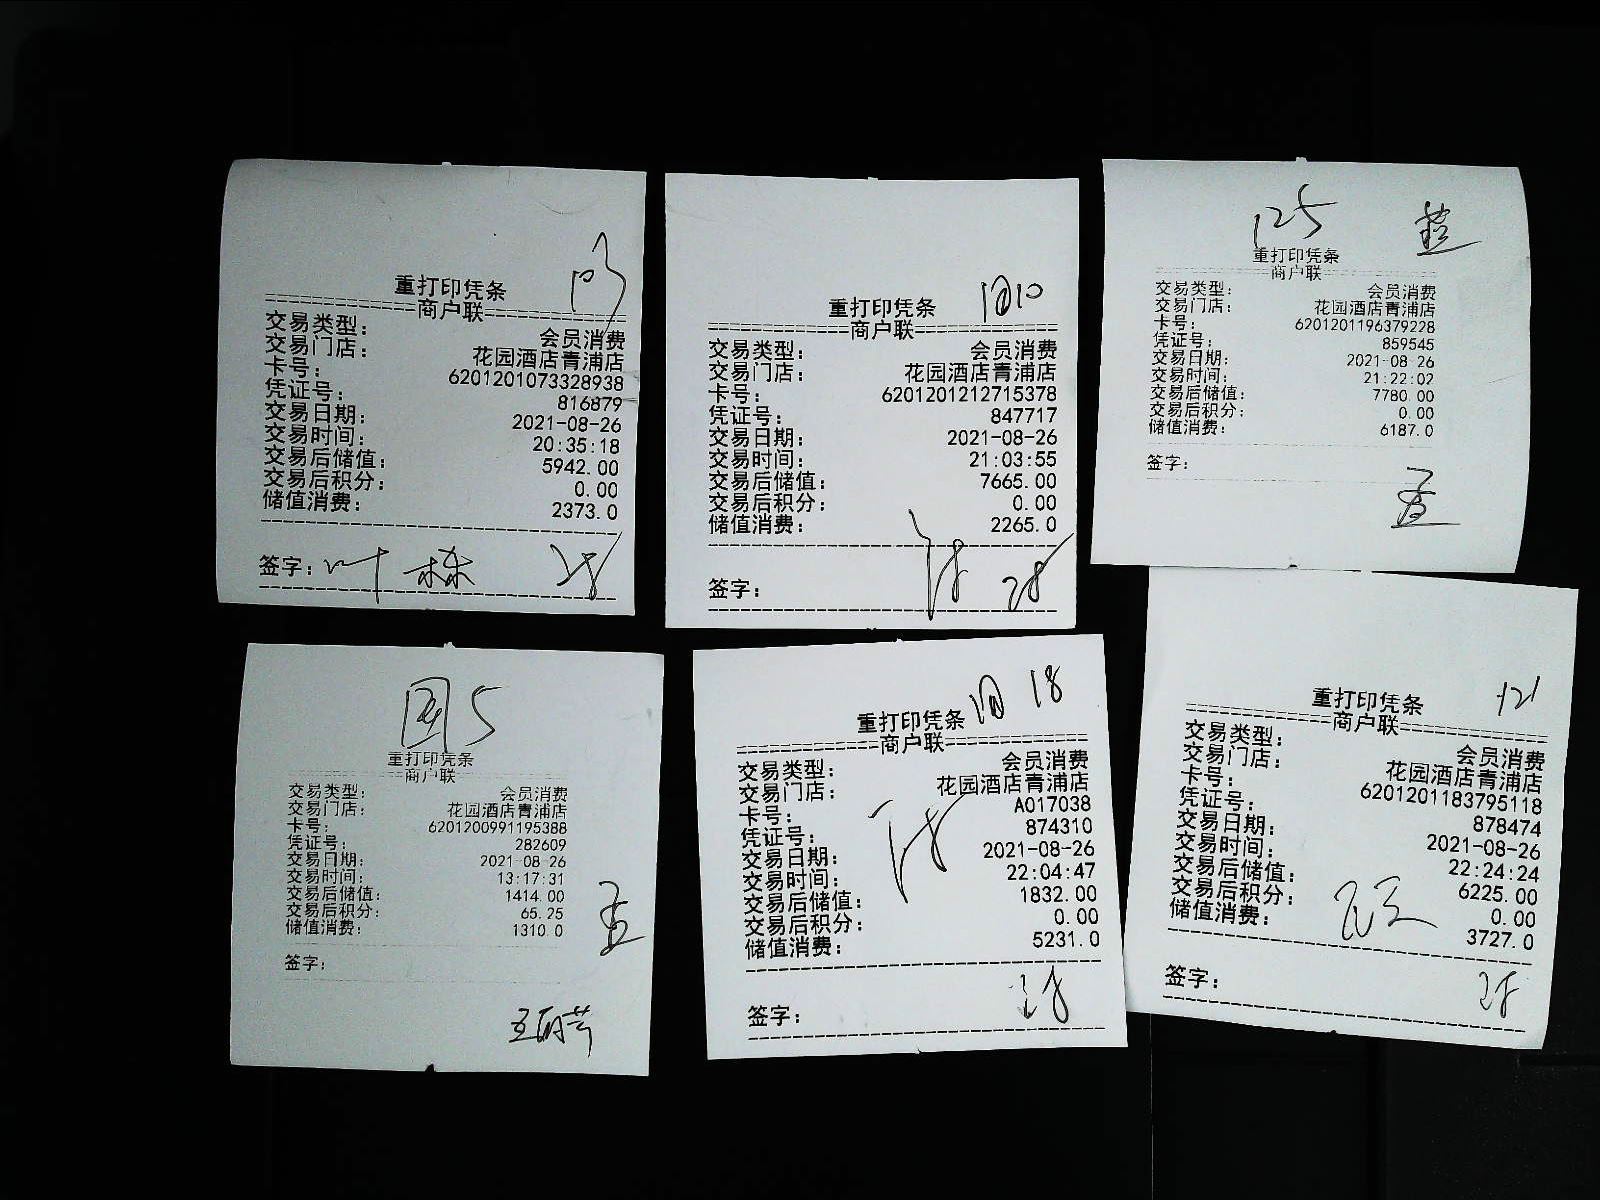 重打印凭条
商户联
交易类型: 会员消费
交易门店: 花园酒店青浦店
卡号: 6201201073328938
凭证号: 816879
交易日期: 2021-08-26
交易时间: 20:35:18
交易后储值: 5942.00
交易后积分: 0.00
储值消费: 2373.0
签字: 叶栋 28
重打印凭条
商户联
交易类型: 会员消费
交易门店: 花园酒店青浦店
卡号: 6201201212715378
凭证号: 847717
交易日期: 2021-08-26
交易时间: 21:03:55
交易后储值: 7665.00
交易后积分: 0.00
储值消费: 2265.0
签字: 28
125
重打印凭条
商户联
交易类型: 会员消费
交易门店: 花园酒店青浦店
卡号: 6201201196379228
凭证号: 859545
交易日期: 2021-08-26
交易时间: 21:22:02
交易后储值: 7780.00
交易后积分: 0.00
储值消费: 6187.0
签字:
5
重打印凭条
商户联
交易类型: 会员消费
交易门店: 花园酒店青浦店
卡号: 6201200991195388
凭证号: 282609
交易日期: 2021-08-26
交易时间: 13:17:31
交易后储值: 1414.00
交易后积分: 65.25
储值消费: 1310.0
签字:
18
重打印凭条
商户联
交易类型: 会员消费
交易门店: 花园酒店青浦店
卡号: A017038
凭证号: 874310
交易日期: 2021-08-26
交易时间: 22:04:47
交易后储值: 1832.00
交易后积分: 0.00
储值消费: 5231.0
签字: 28
121
重打印凭条
商户联
交易类型: 会员消费
交易门店: 花园酒店青浦店
卡号: 6201201183795118
凭证号: 878474
交易日期: 2021-08-26
交易时间: 22:24:24
交易后储值: 6225.00
交易后积分: 0.00
储值消费: 3727.0
签字: 28